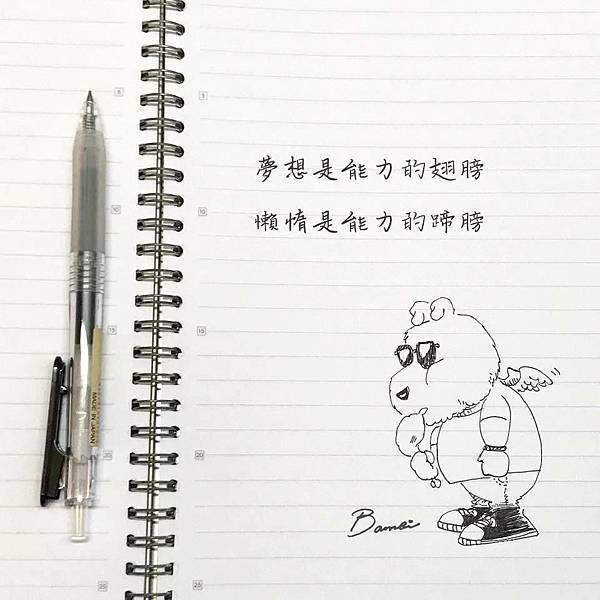 夢想是能力的翅膀
懶惰是能力的蹄膀
Bamei
MADE IN JAPAN
5
10
15
20
25
5
10
15
20
25